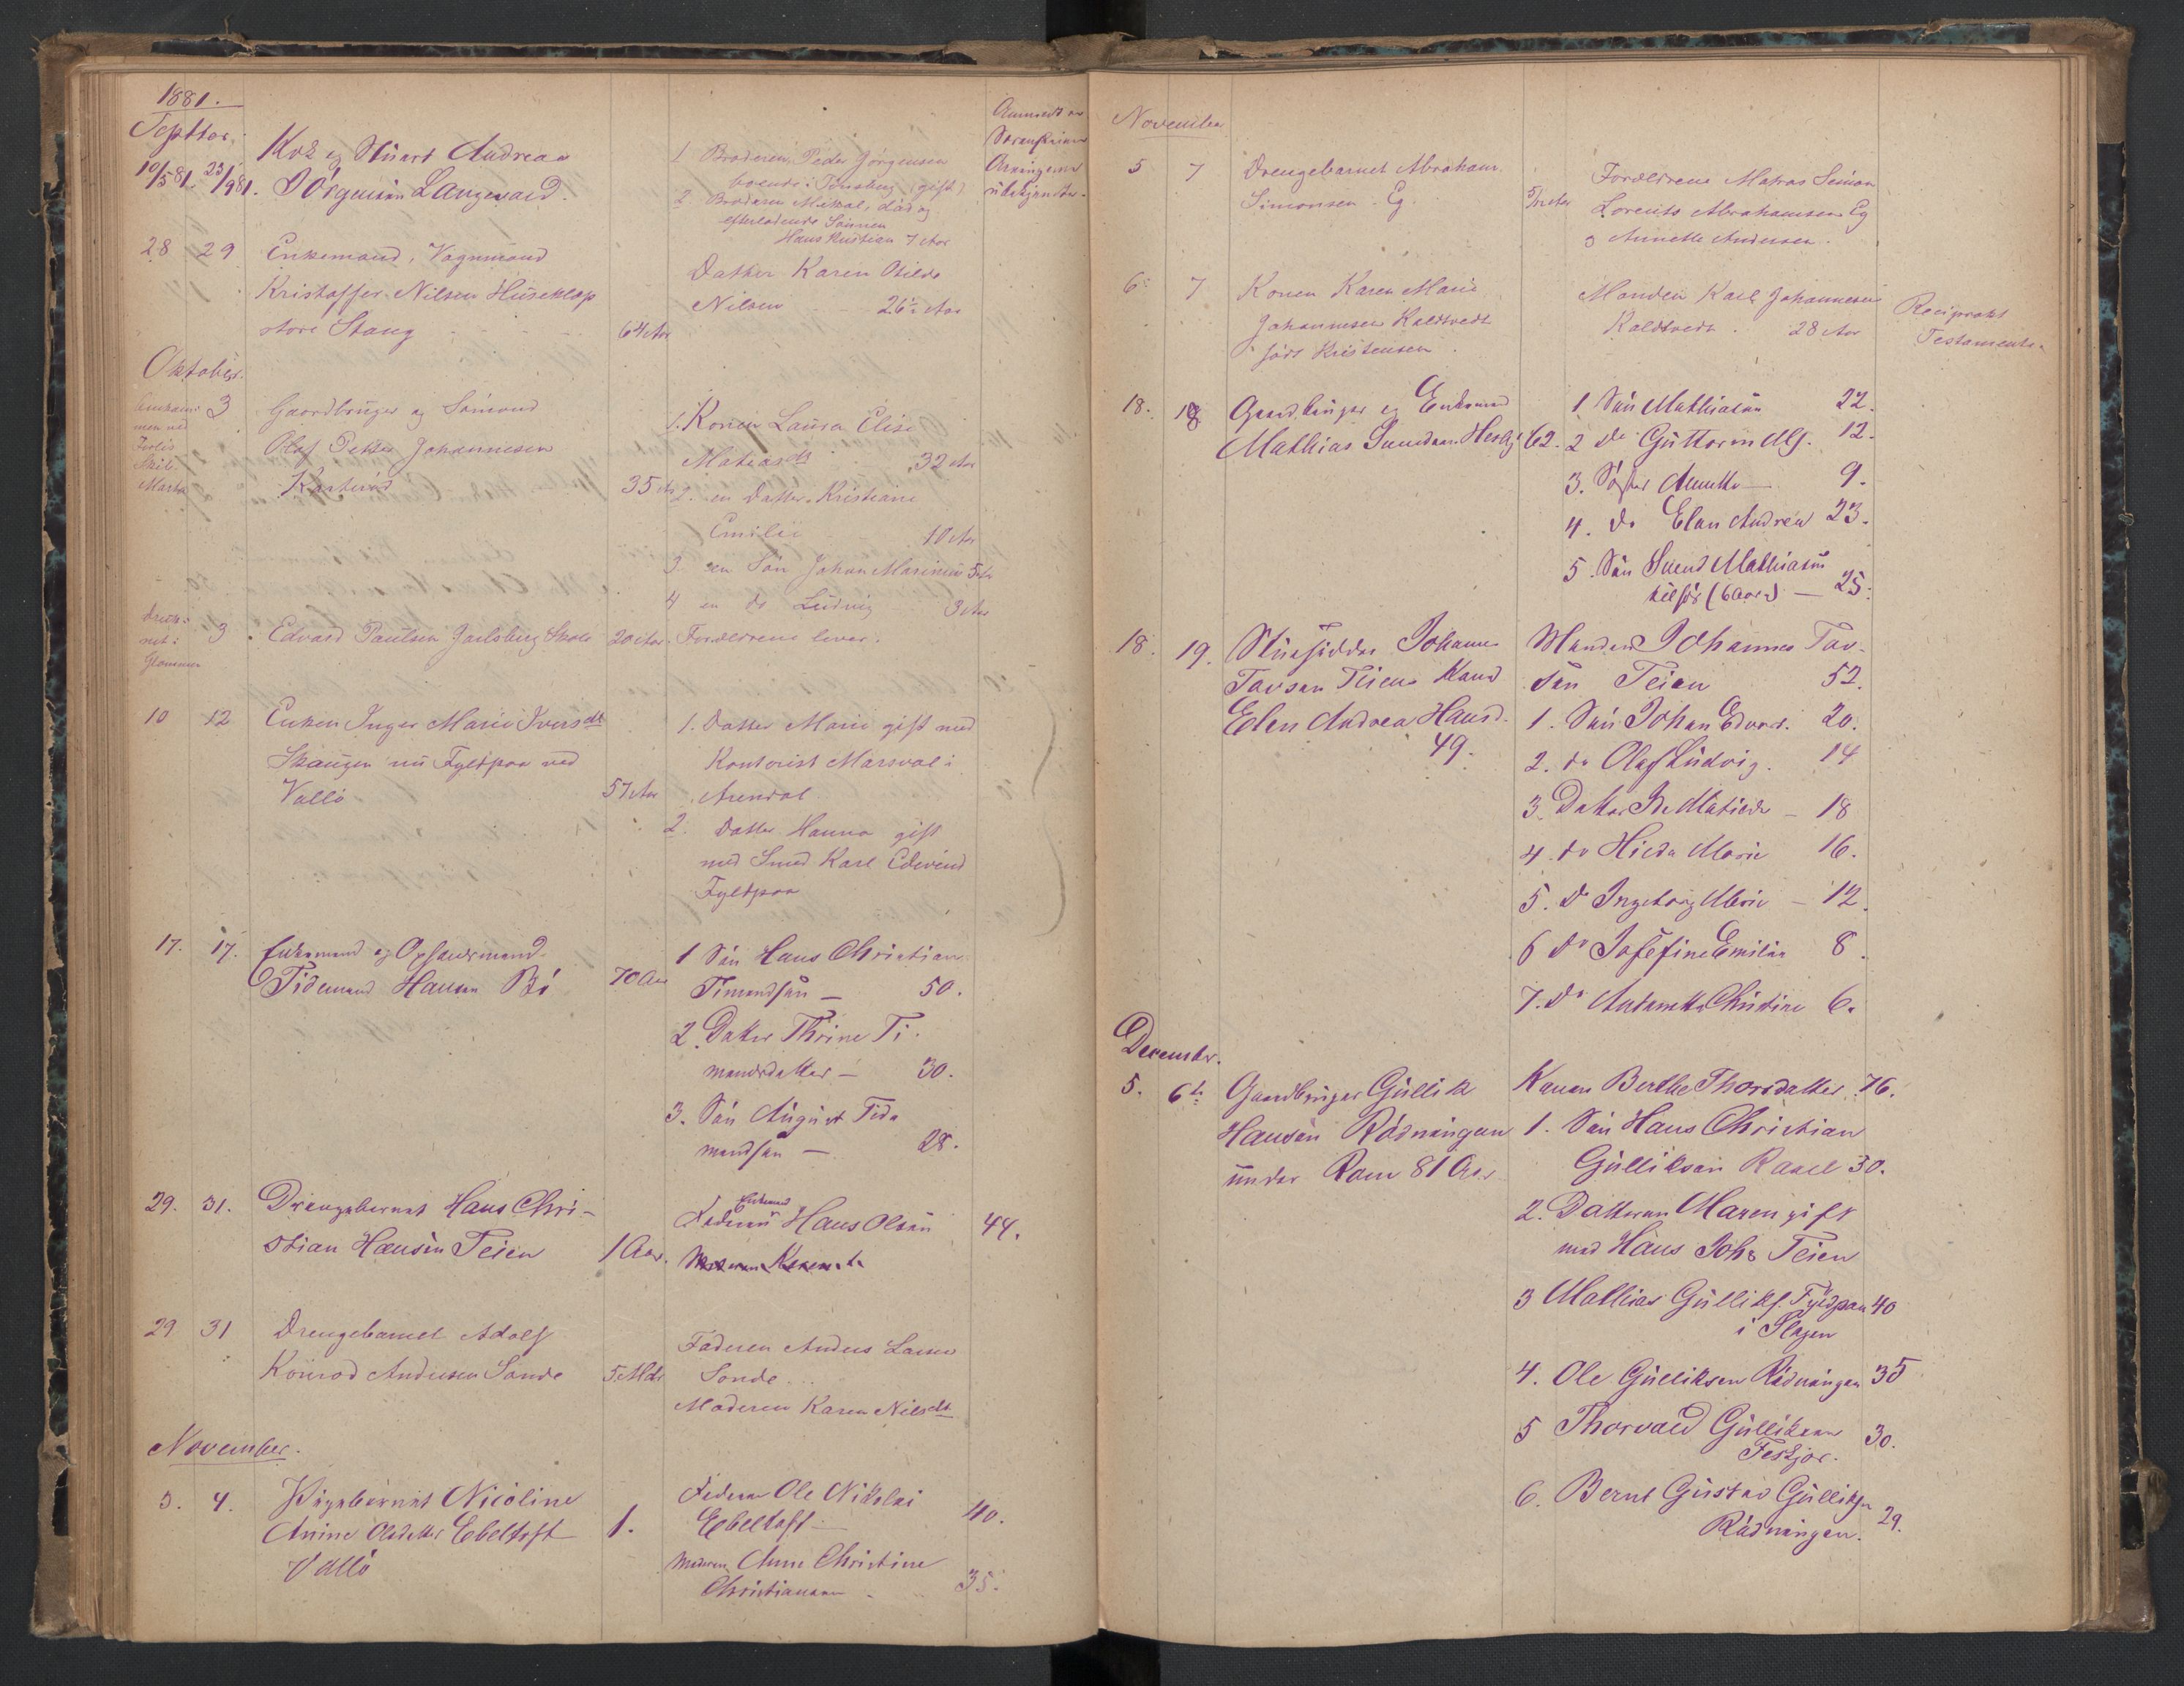 1881.
Septbr.
10/5 81. 23/9 81. Kok og Stuart Andreas
Jörgensen Langevald.
1 Broderen Peder Jörgensen
boende i Tönsberg (gift)
2 Broderen Mikal, död og
efterladende Sönnen
Hans Kristian 7 Aar
Anmeldt av
28 29 Enkemand, Vognmand
Kristoffer Nilsen Huseklep
store Stang 64 Aar
Datter Karen Otilde
Nilsen 26½ Aar
Oktober.
3 Gaardbruger og Sömand
Olaf Petter Johannesen
35 Aar
1. Konen Laura Elise
Matiasdt 32 Aar
2. en Datter Kristiane
Emilie 10 Aar
3 en Sön Johan Marinius 5 Ar
4 en do Ludvig 3 Aar
3. Edvard Paulsen Jarlsberg Skole 20 Aar. Forældrene lever.
Glommen
10 12 Enken Inger Marie Iversdt
Skaugen nu Fyldpaa ved
Vallö 57 Aar
1. Datter Marie gift med
Kontorist Marsval i
Arendal
2. Datter Hanna gift
med Smed Karl Edevind
Fyldpaa
17. 17. Enkemand og Opsidermand
Tidemand Hansen Bö 70 Aar
1 Sön Hans Christian
Timandsen — 50.
2. Datter Thrine Ti-
mandsdatter — 30.
3. Sön August Tide
mandsen — 28.
29. 31. Drengebarnet Hans Chri-
stian Hansen Teien 1 Aar.
Enkemd
Faderen Hans Olsen 44.
29 31 Drengebarnet Adolf
Konrad Andersen Sande 5 Mdr
Faderen Anders Larsen
Sande
Moderen Karen Nilsdt
November.
3. 4. Pigebarnet Nicoline
Anine Olsdatter Ebeltoft
Vallö 1.
Faderen Ole Nikolai
Ebeltoft — 40.
Moderen Anne Christine
Christiansen 35.
November
5 7 Drengebarnet Abraham
Simonsen Eg.
Forældrene Matros Simon
Lorents Abrahamsen Eg
og Annette Andersen.
6 7 Konen Karen Marie
Johannesen Kaldtvedt
född Kristensen.
Manden Karl Johannesen
Kaldtvedt. 28 Aar
Reciprokt
Testamente.
18. 18 Gaardbruger og Enkemand
Mathias Svendsen Hesby 62.
1. Sön Mathiasen 22.
2 Do Guttorm Mg. 12.
3. Datter Annette — 9.
4. Do Elen Andrea 23.
5. Sön Svend Mathiasen
tilsös (6 Aar) — 25.
18. 19. Stuesidder Johannes
Tovsen Teiens Kone
Elen Andrea Hansd.
49.
Manden Johannes Tov-
sen Teien 52.
1. Sön Johan Edvard. 20.
2. do Olaf Ludvig. 14
3. Datter Ide Matilde — 18
4. do Hilda Marie 16.
5. Do Ingeborg Marie — 12.
6 Do Josefine Emilie 8.
7. Do Antonette Christine 6.
December.
5. 6te Gaardbruger Gullik
Hansen Rödningen
under Rom 81 Aar
Konen Berthe Thorsdatter 76.
1. Sön Hans Christian
Gulliksen Ravel 30.
2. Datteren Maren gift
med Hans Johs Teien
3 Mathias Gulliks. Fyldpaa 40
i Slagen
4. Ole Gulliksen Rödningen 35
5 Thorvald Gulliksen
Feskjær. 30.
6. Bernt Gustav Gulliksen
Rödningen. 29.